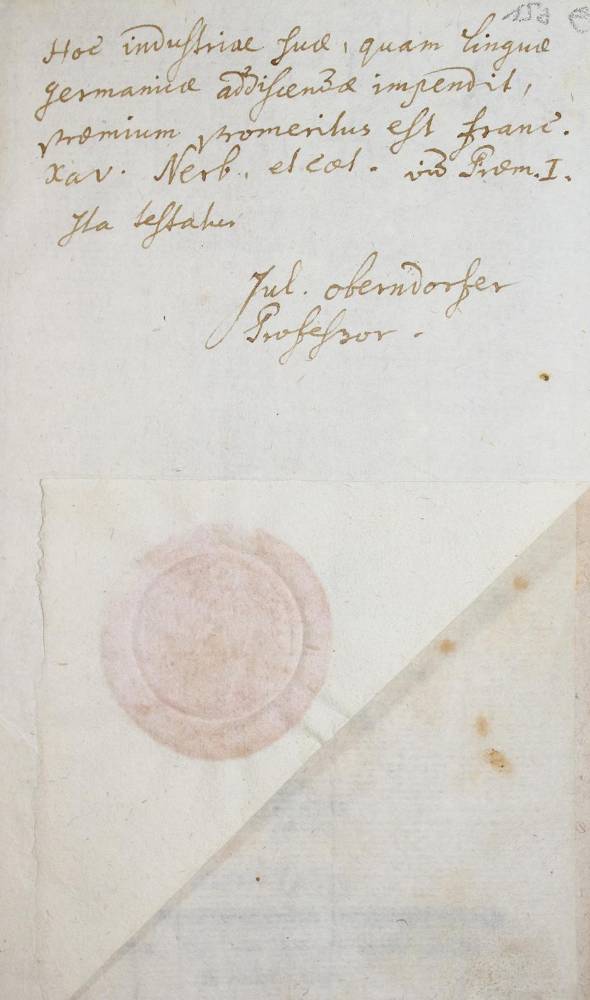 150
Hoc industriae suae, quam linguae
germanicae addiscendae impendit,
praemium promeritus est Franc.
Xav. Nerb. et caet. Praem. I.
Ita testatur
Jul. oberndorfer
Professor.